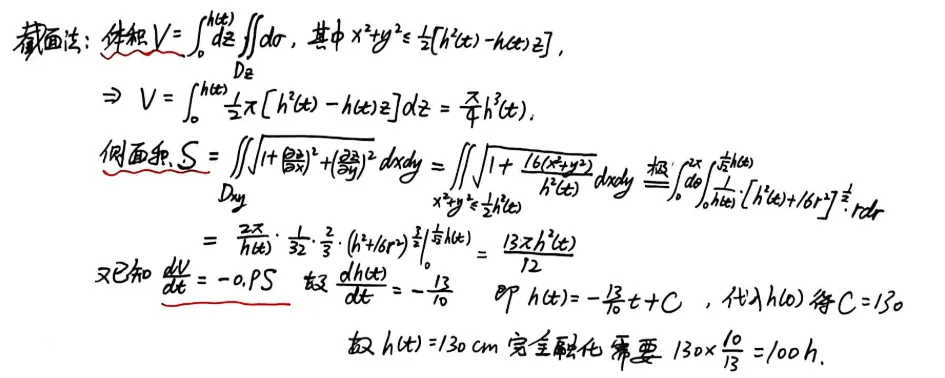 截面法: 体积 V = ∫₀^{h(t)} dz ∬_{Dz} dσ, 其中 x²+y² ≤ ½[h²(t) - h(t)z],
⇒ V = ∫₀^{h(t)} ½π[h²(t) - h(t)z]dz = π/4 h³(t).
侧面积 S = ∬_{Dxy} √(1+(∂z/∂x)²+(∂z/∂y)²) dxdy = ∬_{x²+y²≤½h²(t)} √(1 + 16(x²+y²)/h²(t)) dxdy 极= ∫₀^{2π} dθ ∫₀^{1/√2 h(t)} 1/h(t) · [h²(t)+16r²]^{1/2} · rdr
= 2π/h(t) · 1/32 · 2/3 · (h²+16r²)^{3/2} |₀^{1/√2 h(t)} = 13πh²(t)/12
又已知 dV/dt = -0.9S 故 dh(t)/dt = -13/10 即 h(t) = -13/10 t + C , 代入h(0) 得 C = 130
故 h(t) = 130 cm 完全融化需要 130 × 10/13 = 100 h.